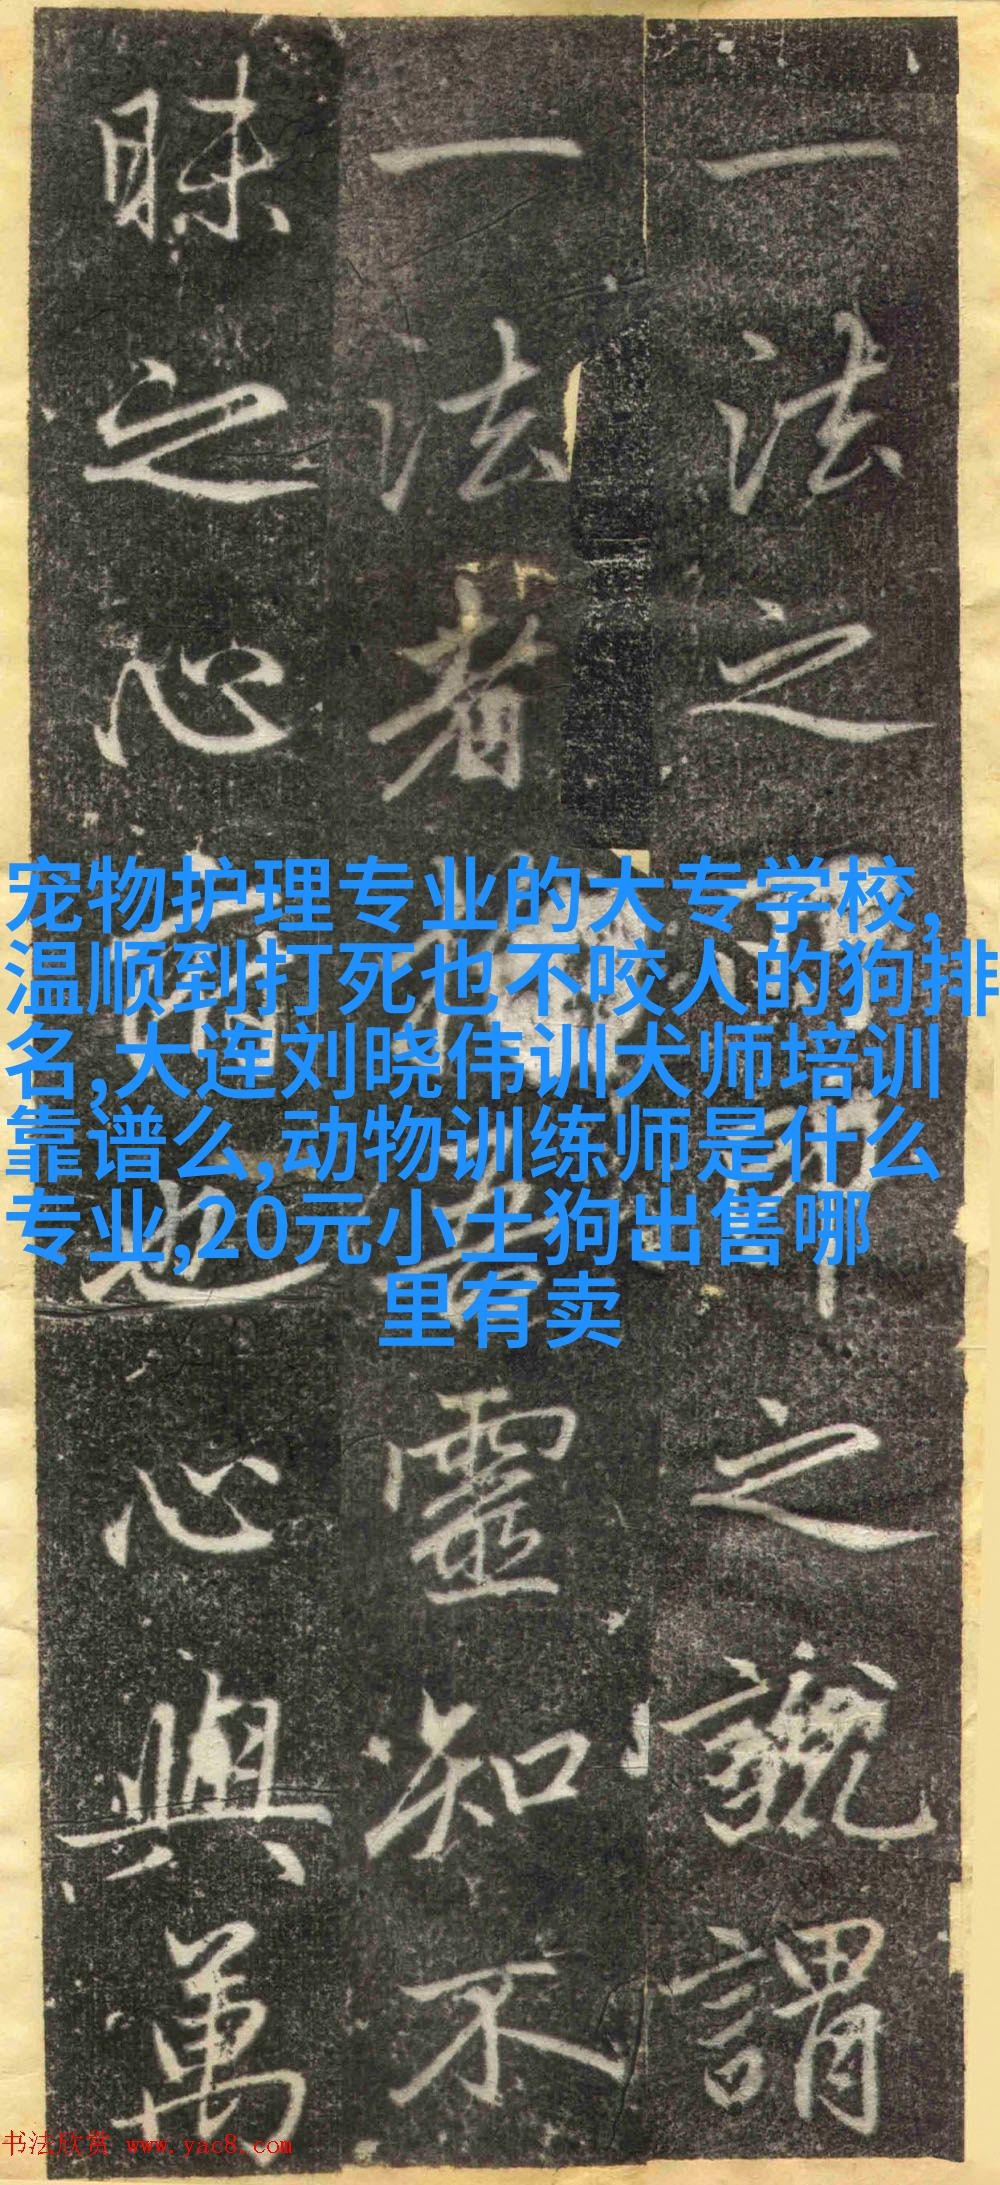 一法之
之
謂
一法者
靈知不
昧之心
也心與萬
宠物护理专业的大专学校,
温顺到打死也不咬人的狗排
名,大连刘晓伟训犬师培训
靠谱么,动物训练师是什么
专业,20元小土狗出售哪
里有卖
书法欣赏 www.yac8.com